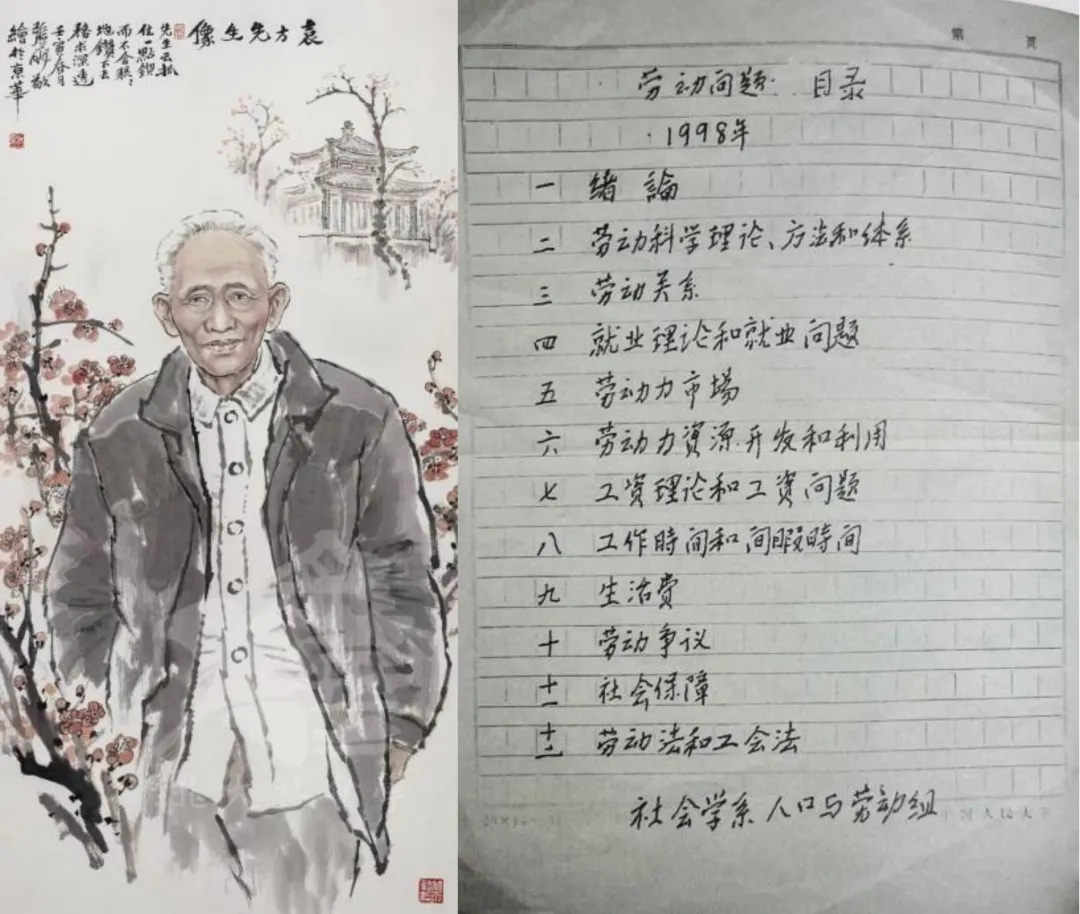 袁方先生像
先生云抓
住一點鍥
而不舍狠〻
地鑽下去
務求深透
壬寅春月
敬
繪於京華
第 页
劳动问题 目录
1998年
一 绪 論
二 劳动科学理论、方法和体系
三 劳动关系
四 就业理论和就业问题
五 劳动力市场
六 劳动力資源开发和利用
七 工资理论和工资问题
八 工作時间和间暇時间
九 生活费
十 劳动争议
十一 社会保障
十二 劳动法和工会法
社会学系人口与劳动组